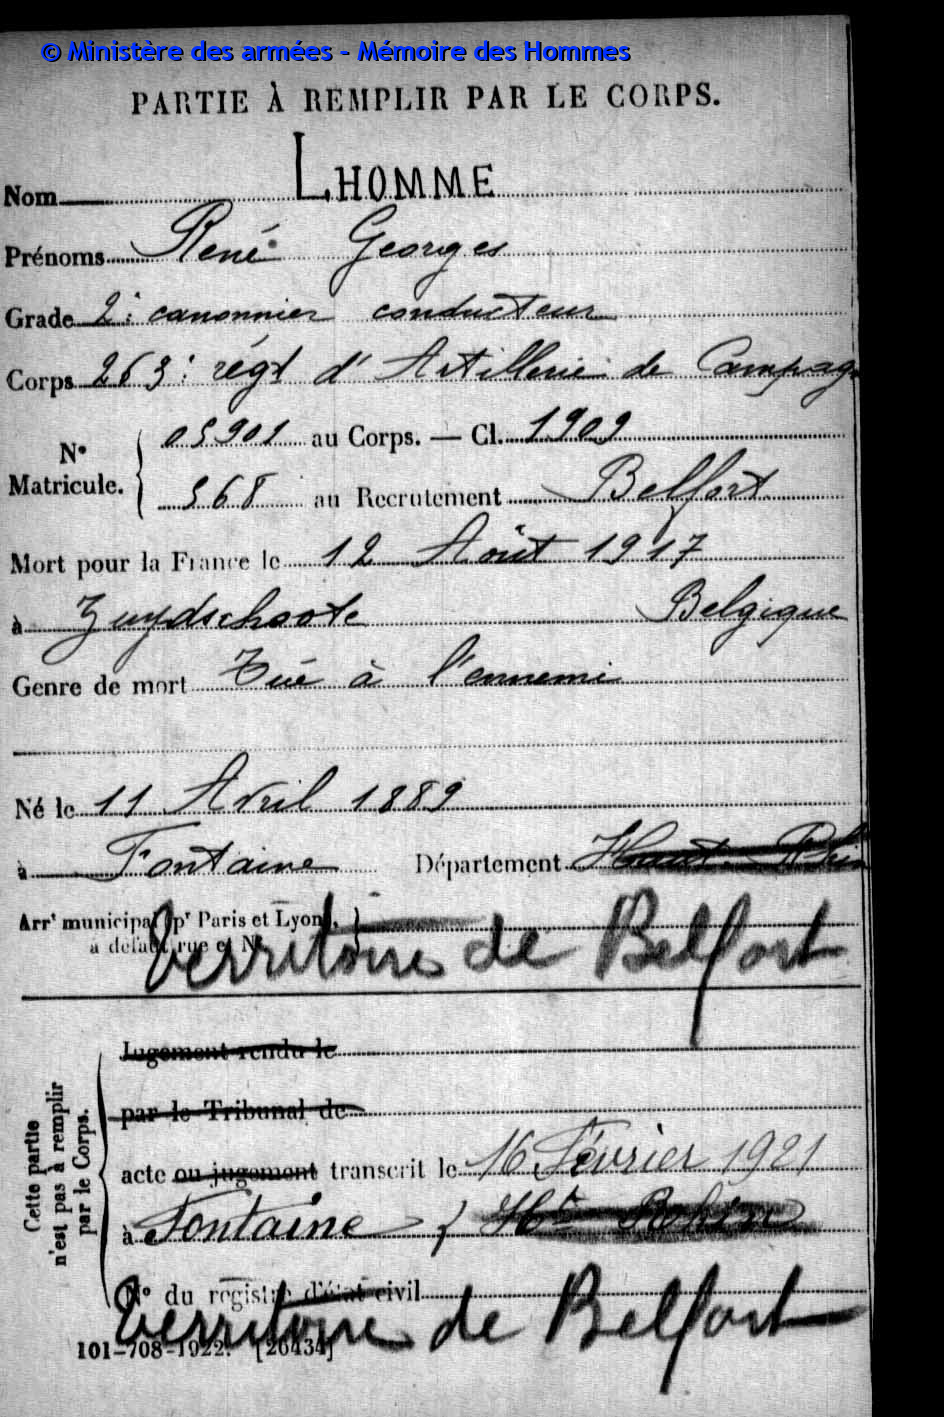 © Ministère des armées - Mémoire des Hommes
PARTIE À REMPLIR PAR LE CORPS.
Nom LHOMME
Prénoms René Georges
Grade 2e canonnier conducteur
Corps 263e régt d'Artillerie de Campag
N° Matricule. 05901 au Corps. — Cl. 1909
568 au Recrutement Belfort
Mort pour la France le 12 Août 1917
à Zuydschoote Belgique
Genre de mort Tué à l'ennemi
Né le 11 Avril 1889
à Fontaine Département Haut-Rhin
Arrt municipal (pr Paris et Lyon),
à défaut rue et N°.
Territoire de Belfort
Cette partie n'est pas à remplir par le Corps.
Jugement rendu le
par le Tribunal de
acte ou jugement transcrit le 16 Février 1921
à Fontaine (Ht Rhin)
N° du registre d'état civil
Territoire de Belfort
101-708-1922. [26434]